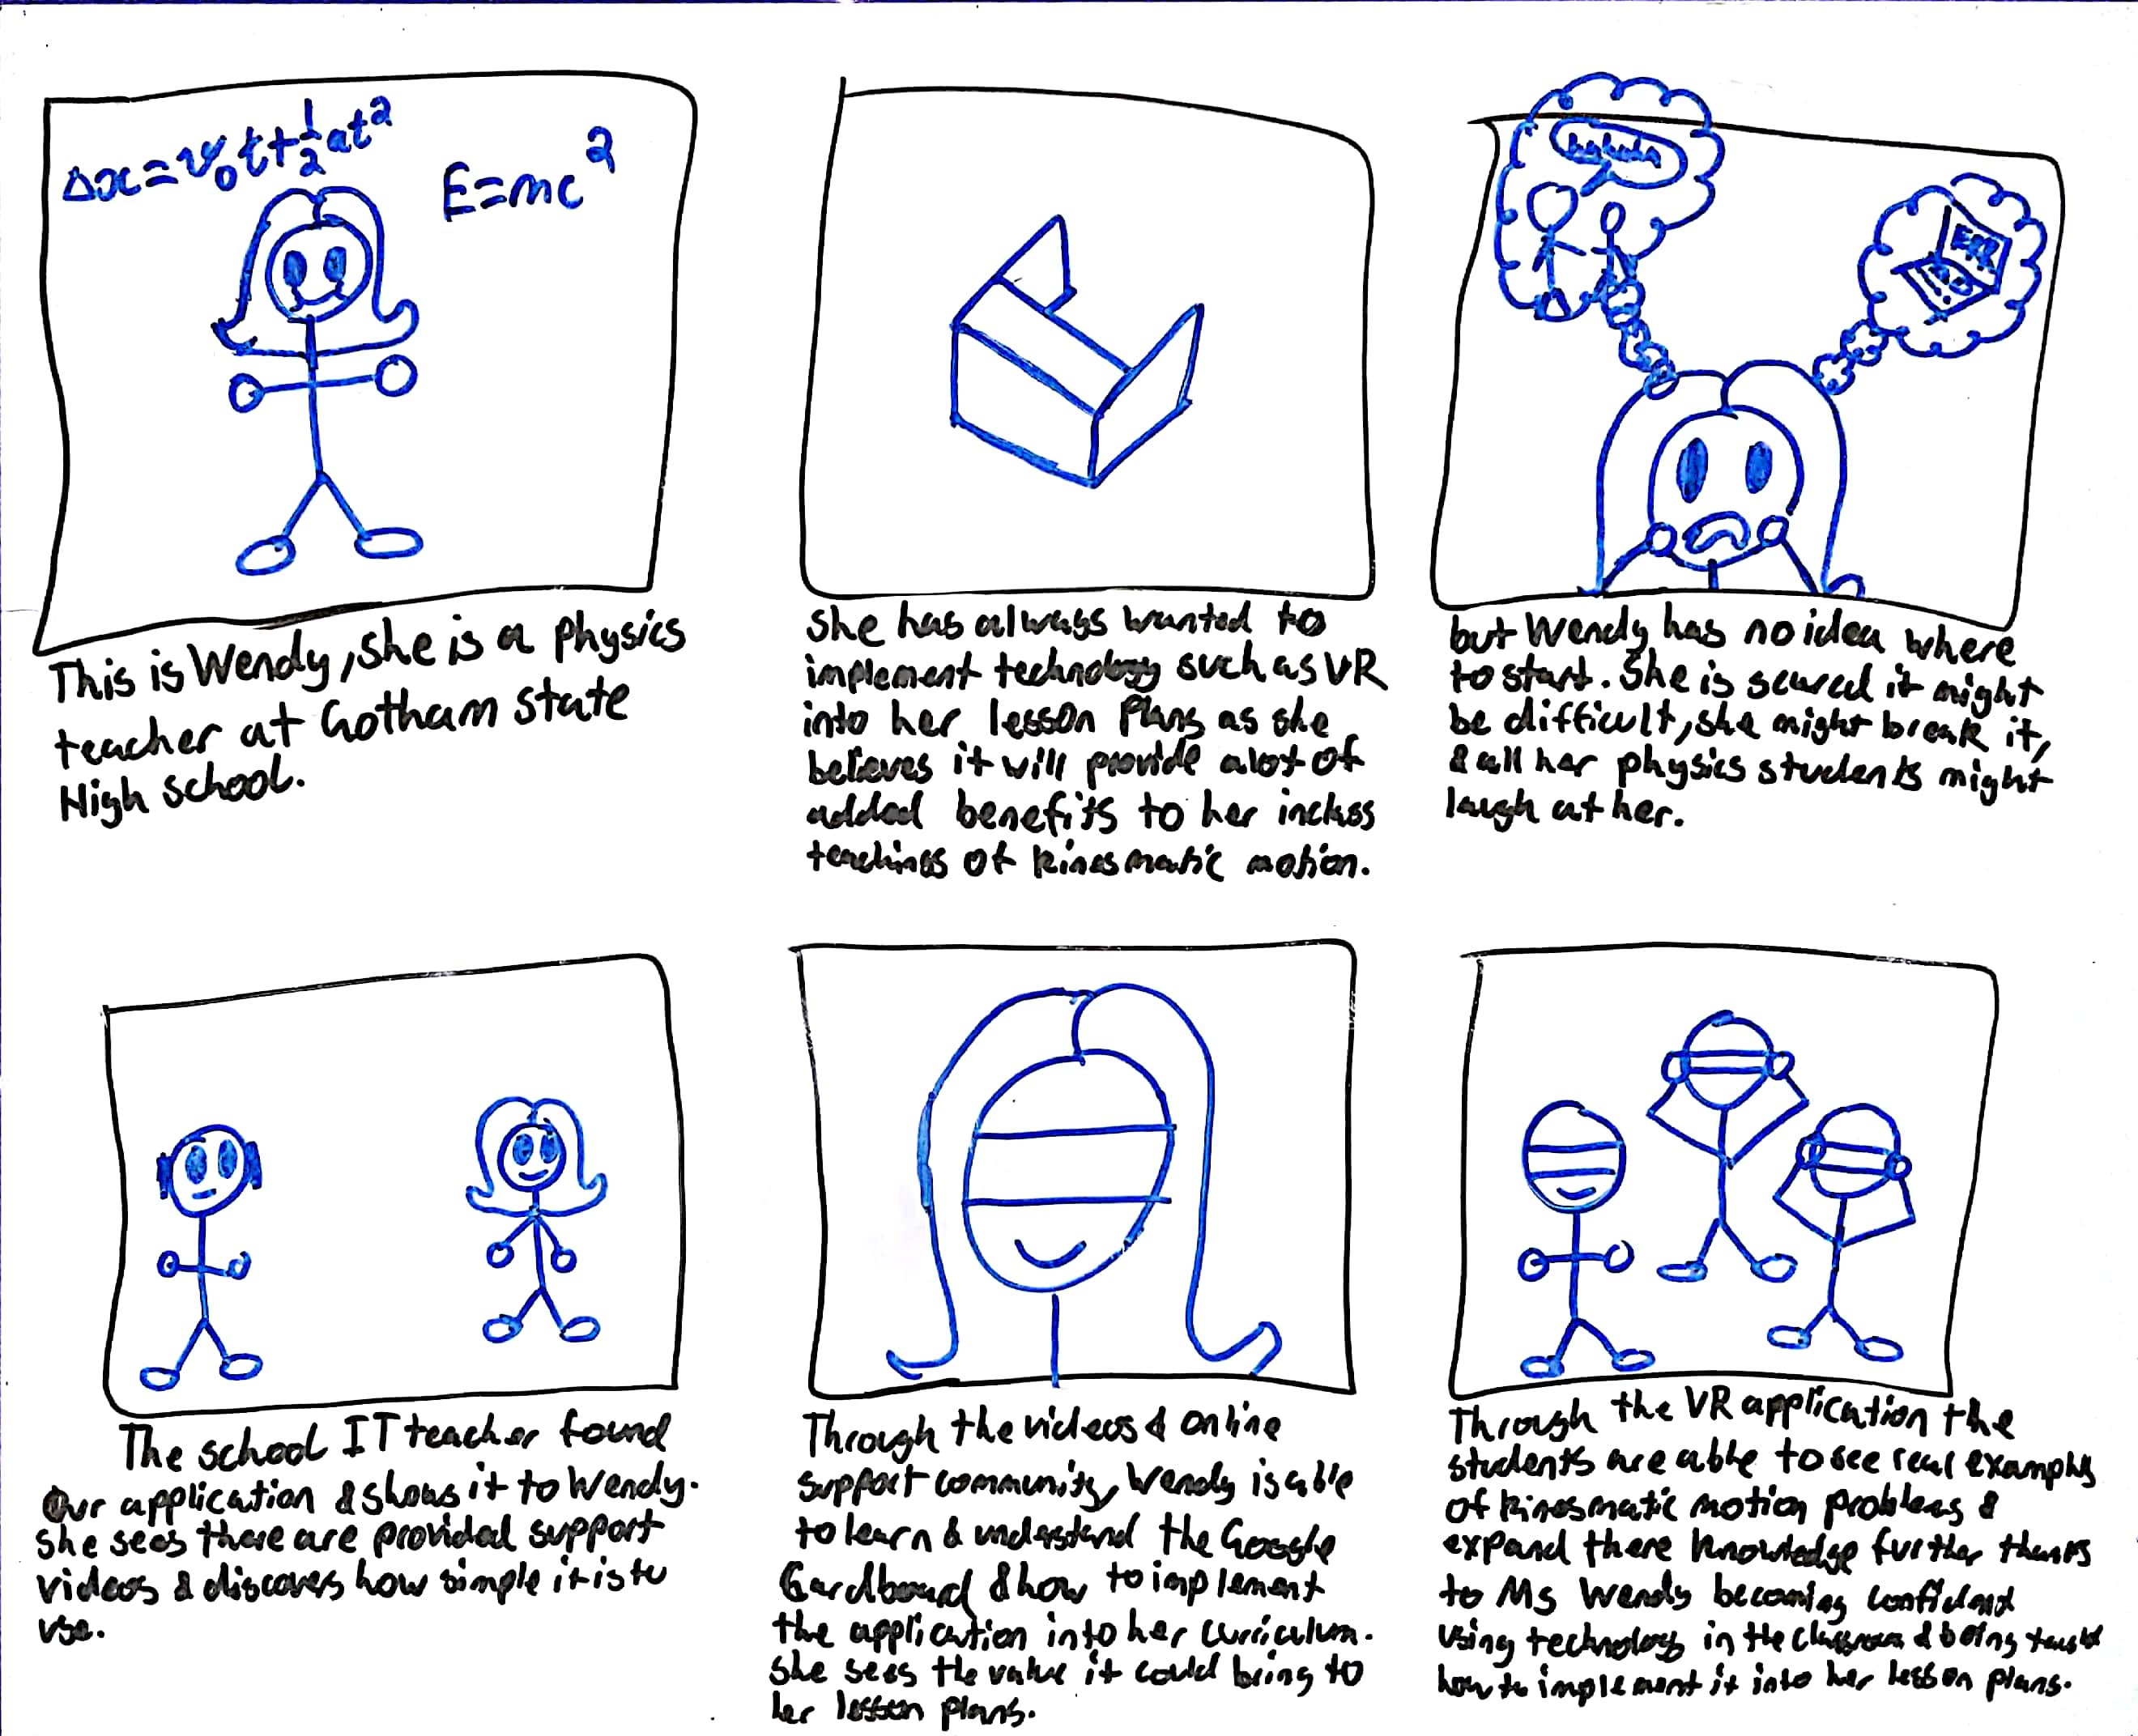 Δx=v₀t+½at²
E=mc²
This is Wendy, she is a physics
teacher at Gotham state
High school.
She has always wanted to
implement technology such as VR
into her lesson Plans as she
believes it will provide alot of
added benefits to her inclass
teachings of kinesmatic motion.
hahaha
ERR
but Wendy has no idea where
to start. She is scared it might
be difficult, she might break it,
& all her physics students might
laugh at her.
The school IT teacher found
Our application & shows it to Wendy.
She sees there are provided support
videos & discovers how simple it is to
use.
Through the videos & online
support community, Wendy is able
to learn & understand the Google
Cardboard & how to implement
the application into her curriculum.
She sees the value it could bring to
her lesson plans.
Through the VR application the
students are able to see real examples
of kinesmatic motion problems &
expand there knowledge further thanks
to Ms Wendy becoming confident
using technology in the classroom & being taught
how to implement it into her lesson plans.